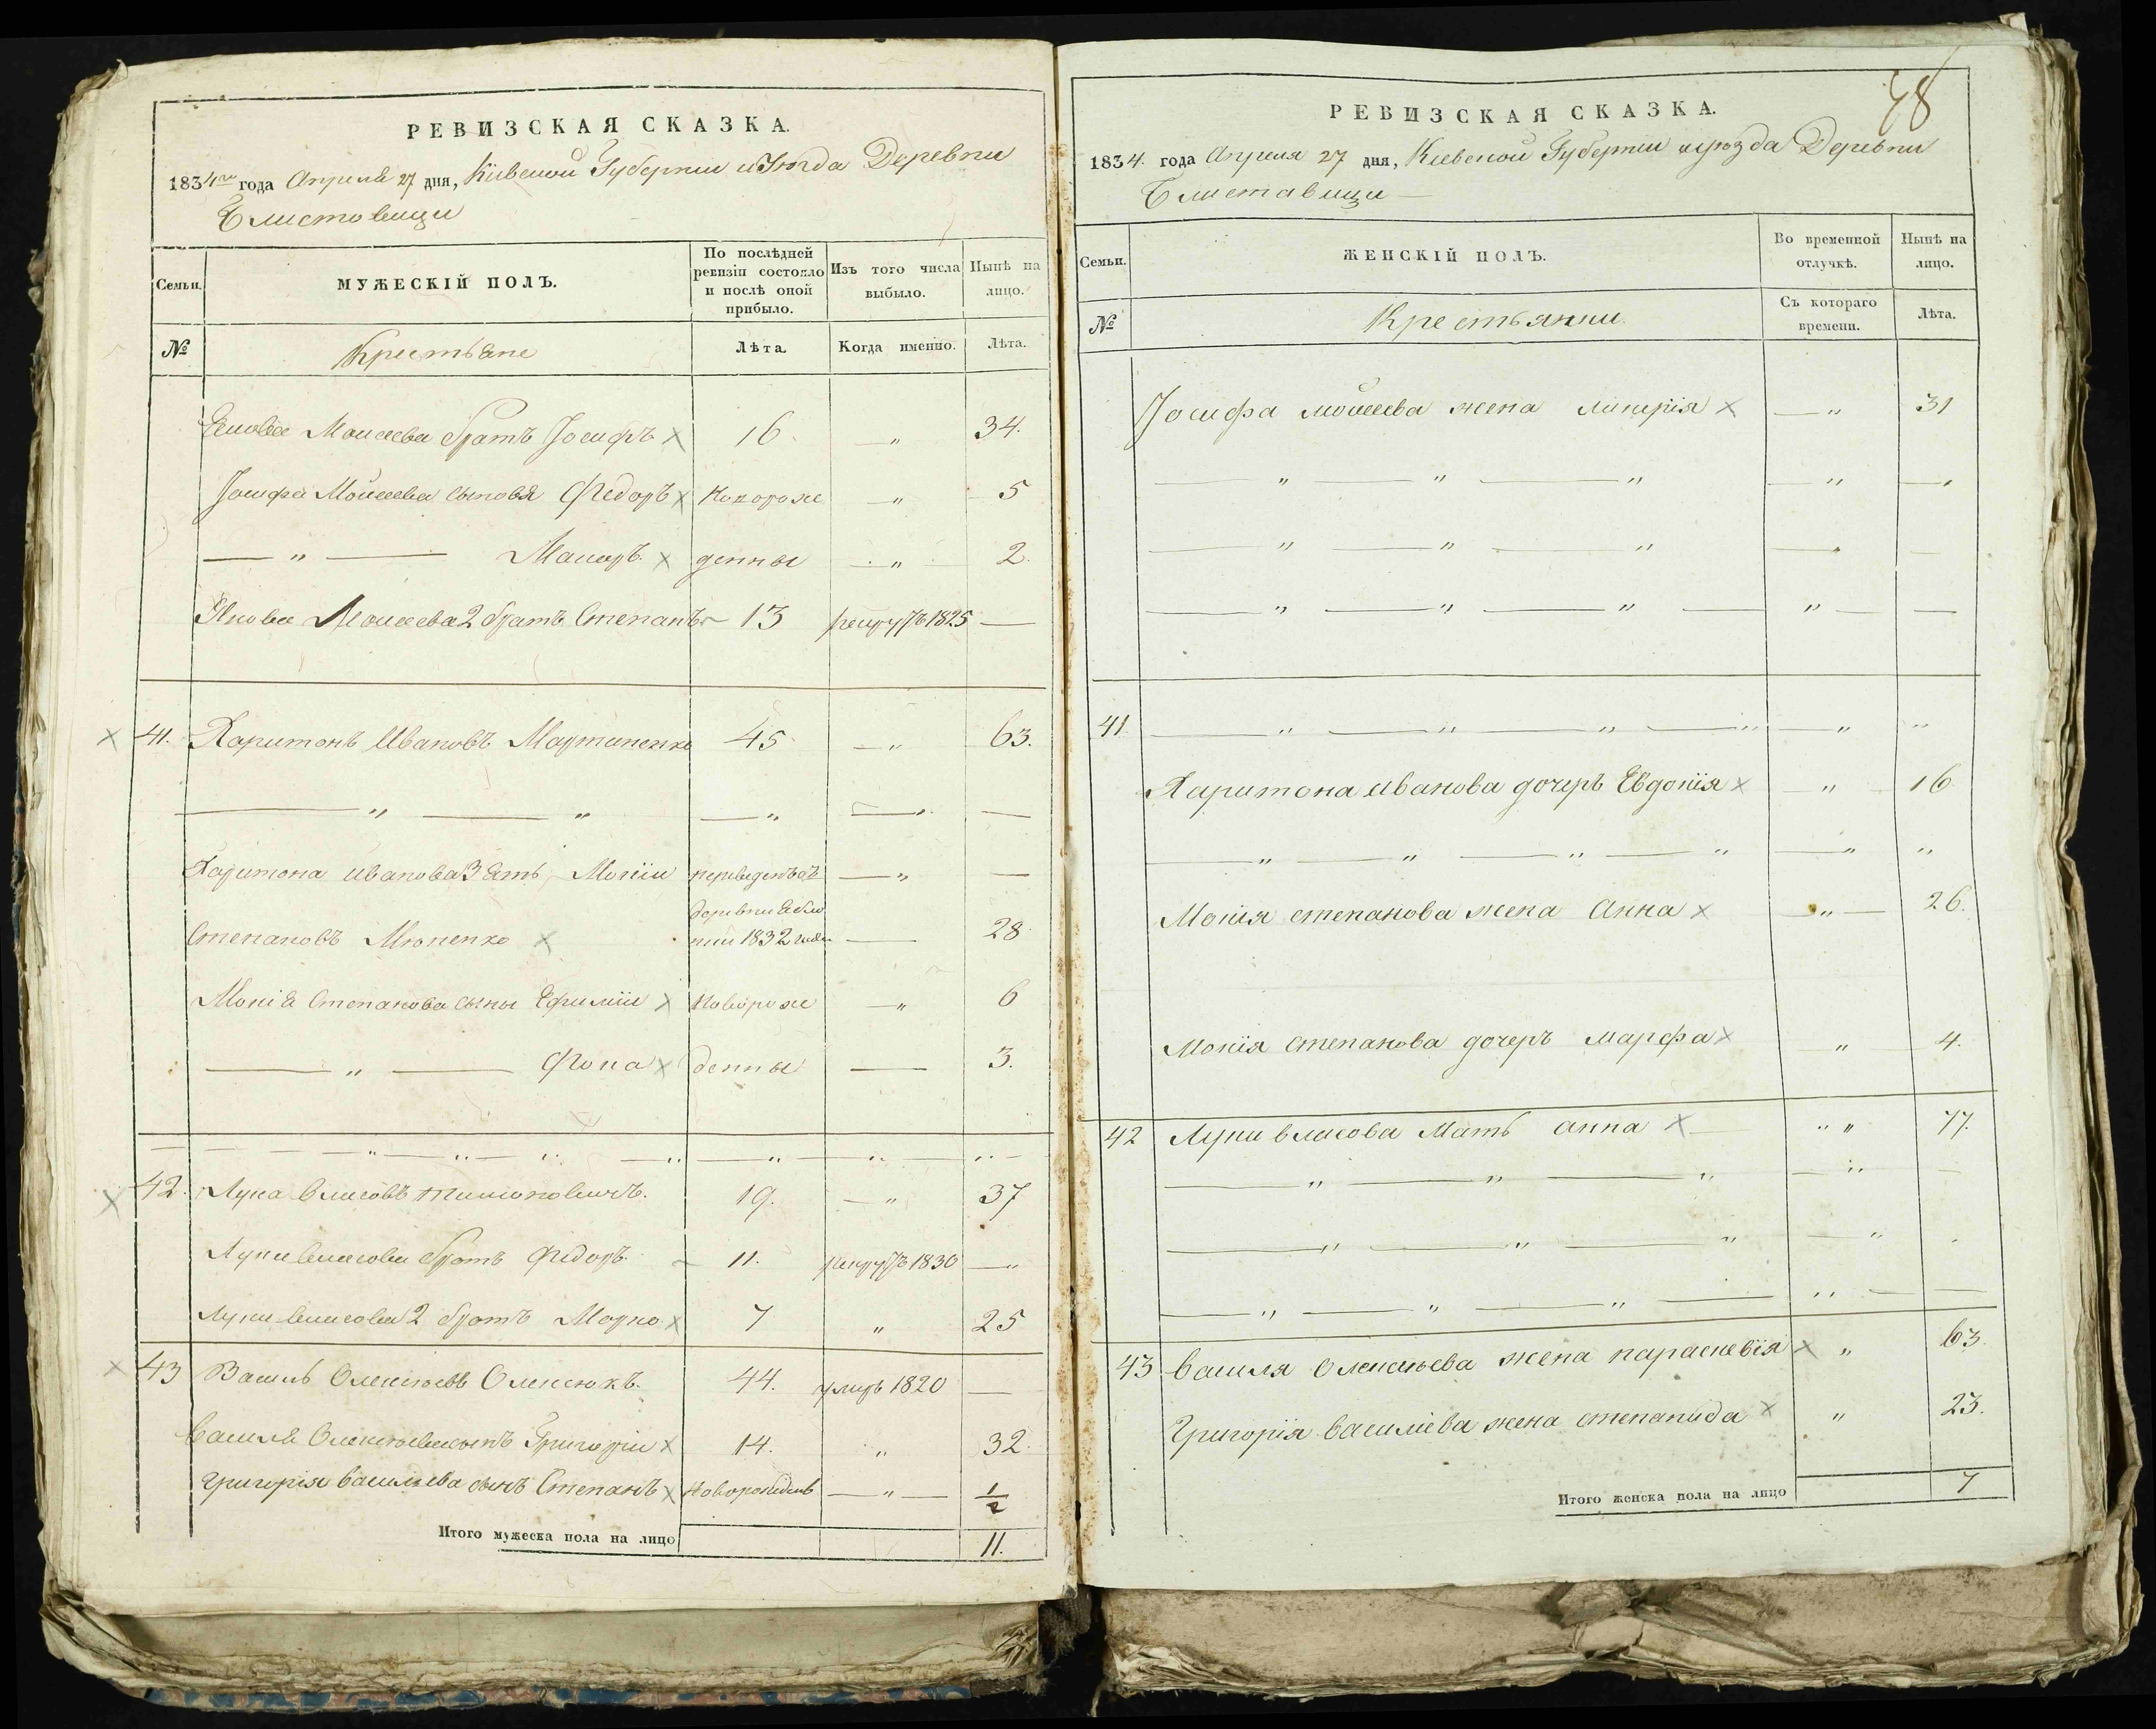 РЕВИЗСКАЯ СКАЗКА.
1834го года Апреля 27 дня, Кіевской Губерніи и Уезда Деревни
Блиставици
Семьи.
МУЖЕСКІЙ ПОЛЪ.
По послѣдней ревизіи состояло и послѣ оной прибыло.
Изъ того числа выбыло.
Нынѣ на лицо.
№
Крестьяне
Лѣта.
Когда именно.
Лѣта.
Моисеева братъ Іосифъ 16. — " 34.
Іосифа Моисеева сыновя Федоръ новорож — " 5
— " — денны — " 2.
Якова Моисеева 2 братъ Степанъ 13 рекрутъ 1825 —
41. Харитонъ Ивановъ Мартиненко 45 — " 63.
— " — " — " — " —
Харитона Иванова Зять, Мокіи переведенъ съ — " —
деревни
Степановъ 1832 года — 28
Мокія Степанова сыны Ефимїи новорож — " 6
— " — Фока денны — 3.
— — — — " — " — " — " — " — " — " —
42. Лука Власовъ 19. — " 37
Луки Власова братъ Федоръ. 11. рекрутъ 1830 — "
Луки Власова 2 братъ Марко 7 " 25
43 Василь Олексіевъ Олексюкъ. 44. умеръ 1820 —
Василя Олексіева сынъ Григорїи 14. " 32.
Григорія Василіева сынъ Степанъ новорожденъ — " — 1/2
Итого мужеска пола на лицо 11.
48
РЕВИЗСКАЯ СКАЗКА.
1834. года Апреля 27 дня, Кіевской Губерніи и уезда Деревни
Блиставици —
Семьи.
ЖЕНСКІЙ ПОЛЪ.
Во временной отлучкѣ.
Нынѣ на лицо.
№
Крестьянки.
Съ котораго времени.
Лѣта.
Іосифа мойсеева жена — " 31
— " — " — " — " — "
— " — " — " — " —
— " — " — " — " — —
41 — " — " — " — " — " "
Харитона Иванова дочерь Евдокія — " — 16
— " — " — " — " — " "
Мокія степанова жена Анна — " — 26.
Мокія степанова дочеръ марфа " 4.
42 Луки власова Мать анна — " " 77.
— " — " — " — " —
— " — " — " — "
— " — " — " — " " — —
43 Василя Олексіева жена параскевїя " 63.
Григорія василіева жена степанида " 23.
Итого женска пола на лицо 7